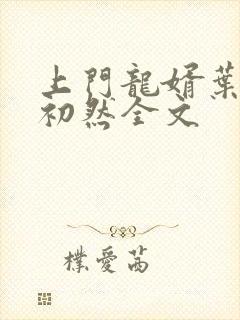 上門龍婿葉
初然全文
樸愛茜